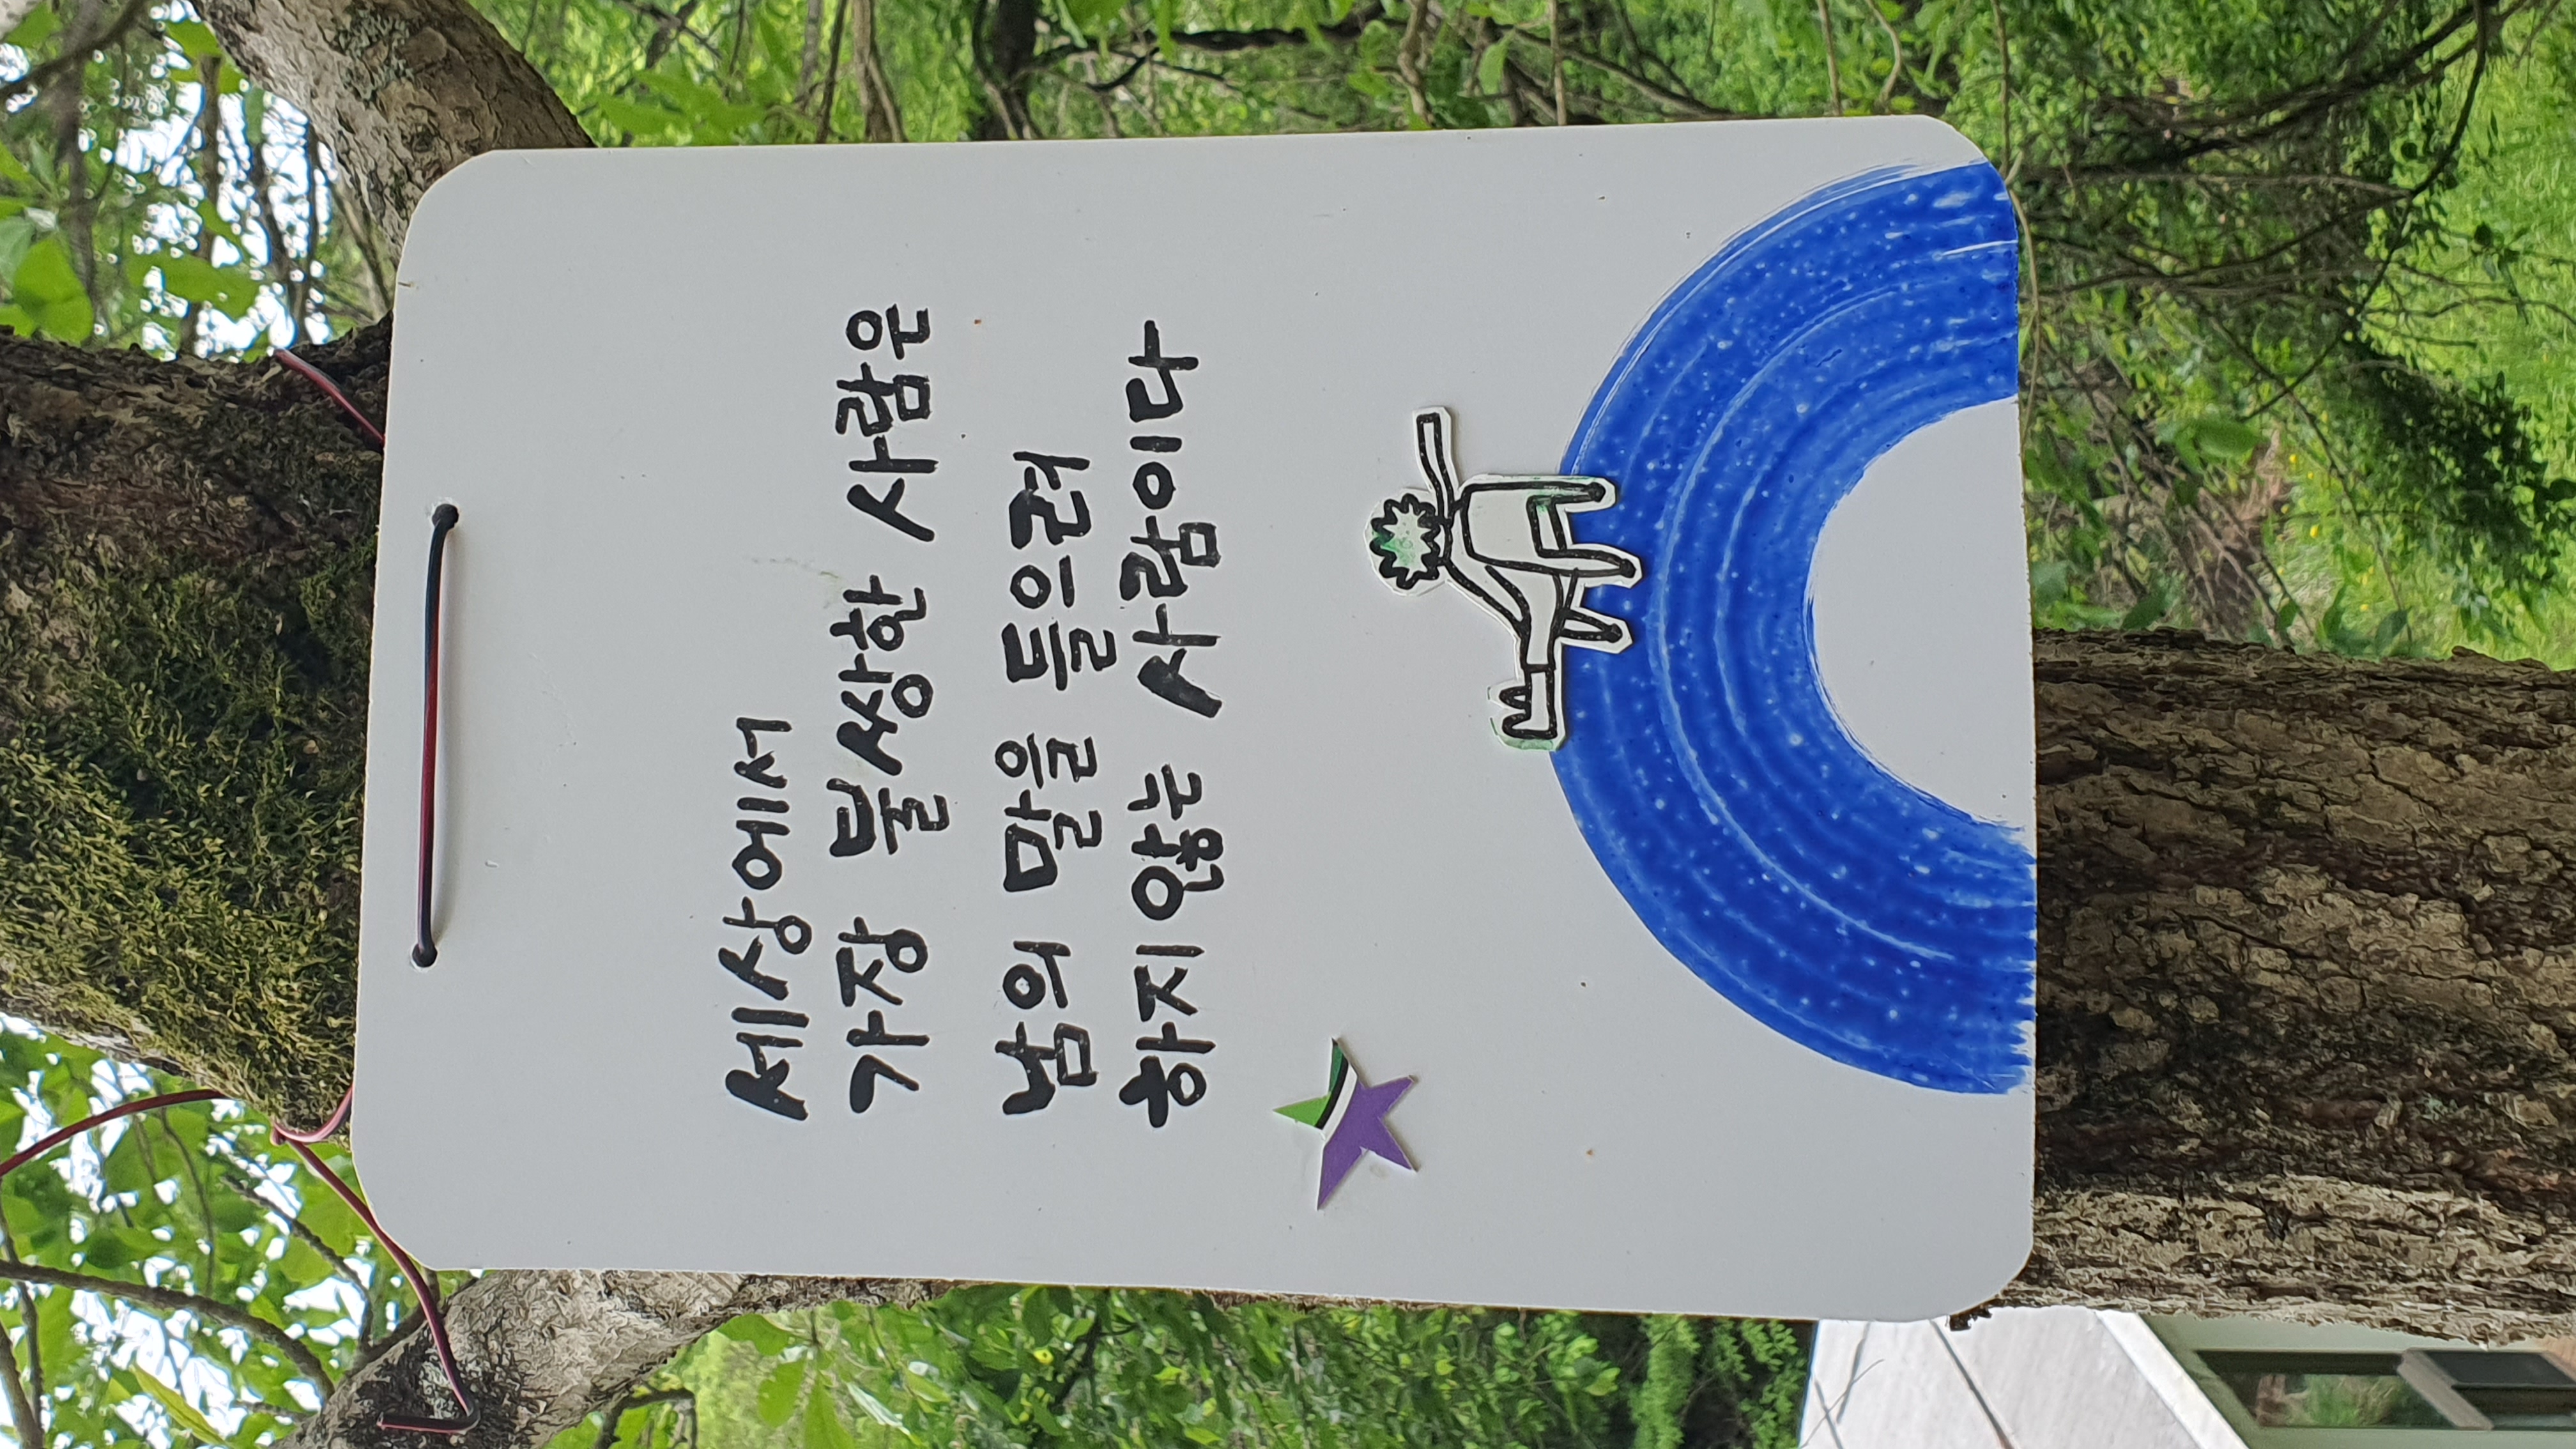 세상에서
가장 불쌍한 사람은
남의 말을 들으려
하지않는 사람이다